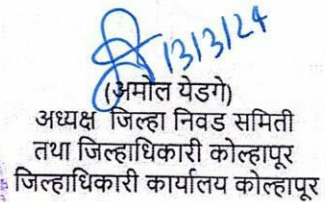 13/3/24
(अमोल येडगे)
अध्यक्ष जिल्हा निवड समिती
तथा जिल्हाधिकारी कोल्हापूर
जिल्हाधिकारी कार्यालय कोल्हापूर